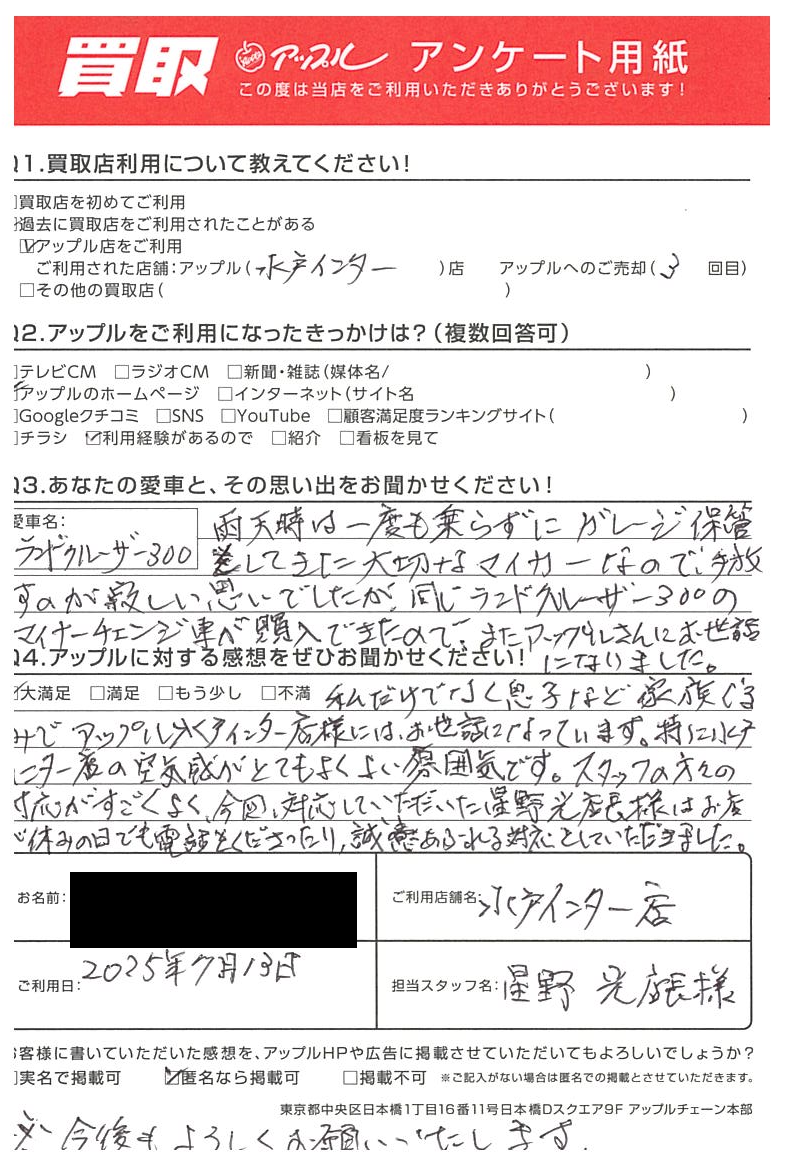 買取 アップル アンケート用紙
この度は当店をご利用いただきありがとうございます!
Q1.買取店利用について教えてください!
□買取店を初めてご利用
過去に買取店をご利用されたことがある
☑アップル店をご利用
ご利用された店舗:アップル(水戸インター )店 アップルへのご売却(3 回目)
□その他の買取店( )
Q2.アップルをご利用になったきっかけは?(複数回答可)
□テレビCM □ラジオCM □新聞・雑誌(媒体名/ )
☑アップルのホームページ □インターネット(サイト名 )
□Googleクチコミ □SNS □YouTube □顧客満足度ランキングサイト( )
□チラシ ☑利用経験があるので □紹介 □看板を見て
Q3.あなたの愛車と、その思い出をお聞かせください!
愛車名:
ランドクルーザー300
雨天時は一度も乗らずにガレージ保管
してきた大切なマイカーなので、手放
すのが寂しい思いでしたが、同じランドクルーザー300の
マイナーチェンジ車が購入できたので、またアップルさんにお世話
になりました。
Q4.アップルに対する感想をぜひお聞かせください!
☑大満足 □満足 □もう少し □不満 私だけでなく息子など家族ぐる
みでアップル水戸インター店様には、お世話になっています。特に水戸
インター店の空気感がとてもよくよい雰囲気です。スタッフの方々の
対応がすごくよく、今回、対応していただいた星野光店長様はお店
が休みの日でも電話をくださったり、誠意あふれる対応をしていただきました。
お名前:
ご利用店舗名:水戸インター店
ご利用日:2025年7月13日
担当スタッフ名:星野 光店長様
お客様に書いていただいた感想を、アップルHPや広告に掲載させていただいてもよろしいでしょうか?
□実名で掲載可 ☑匿名なら掲載可 □掲載不可 ※ご記入がない場合は匿名での掲載とさせていただきます。
東京都中央区日本橋1丁目16番11号日本橋Dスクエア9F アップルチェーン本部
※ 今後もよろしくお願いいたします。